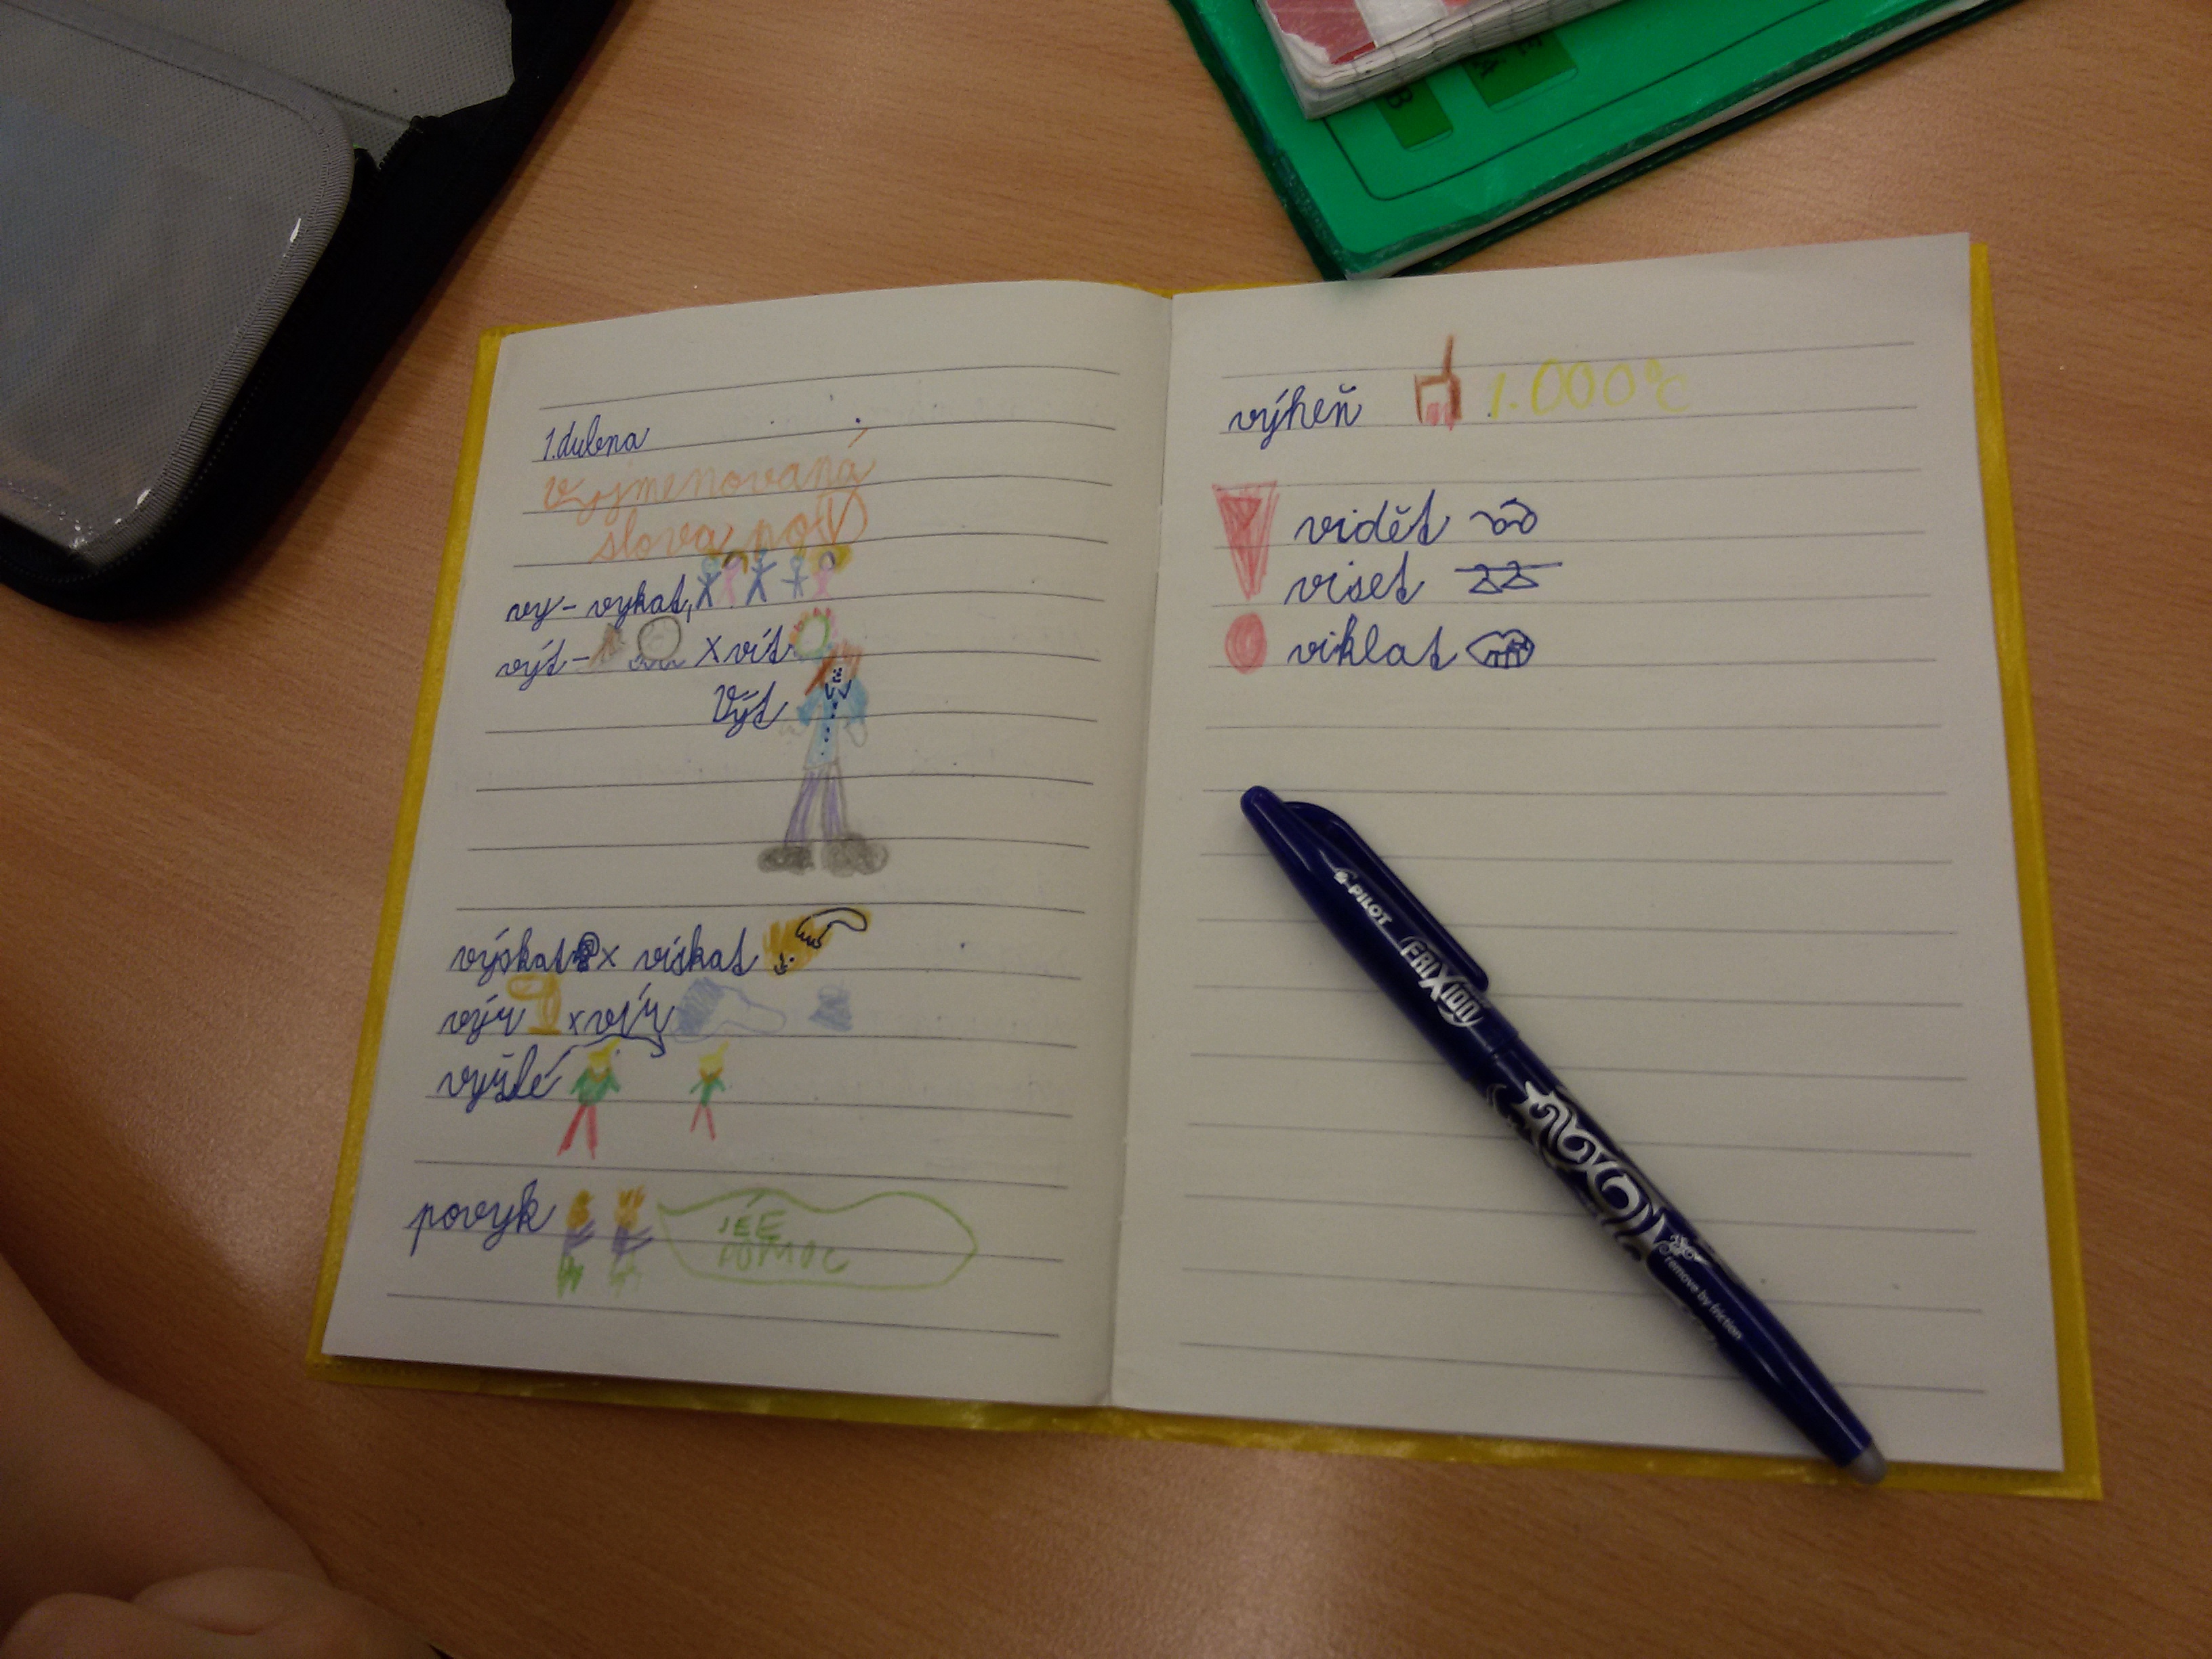 1. dubna
Vyjmenovaná
slova po V
vy - vykat,
výt - x vít
Výt
výskat x vískat
výr x vír
vyžle
povyk
JÉÉ
POMOC
výheň 1.000°C
! vidět
viset
viklat
PILOT
FRIXION
remove by friction
B